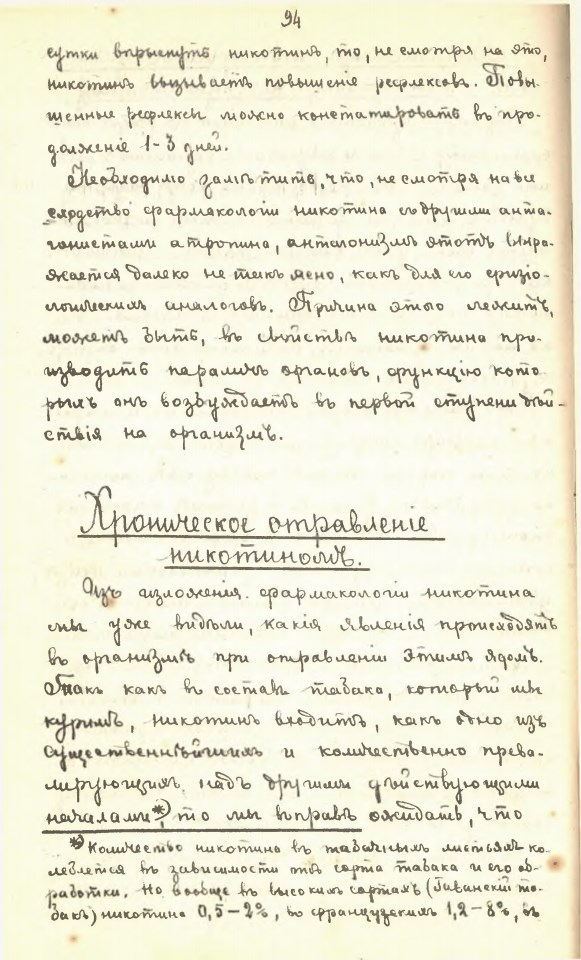 94
сутки впрыснуть никотинъ, то, не смотря на это,
никотинъ вызываетъ повышеніе рефлексовъ. Повы-
щенные рефлексы можно констатировать въ про-
долженіе 1-3 дней.
Необходимо замѣтить, что, не смотря на все
сходство фармакологіи никотина съ другими анта-
гонистами атропина, антагонизмъ этотъ выра-
жается далеко не такъ ясно, какъ для его физіо-
логическихъ аналоговъ. Причина этого лежитъ,
можетъ быть, въ свойствѣ никотина про-
изводить параличъ органовъ, функцію кото-
рыхъ онъ возбуждаетъ въ первой ступени дѣй-
ствія на организмъ.
Хроническое отравленіе
никотиномъ.
Изъ изложенія фармакологіи никотина
мы уже видѣли, какія явленія происходятъ
въ организмѣ при отравленіи этимъ ядомъ.
Такъ какъ въ составъ табака, который мы
куримъ, никотинъ входитъ, какъ одно изъ
существеннѣйшихъ и количественно прева-
лирующихъ надъ другими дѣйствующими
началами*), то мы вправѣ ожидать, что
*) Количество никотина въ табачныхъ листьяхъ ко-
леблется въ зависимости отъ сорта табака и его об-
работки. Но вообще въ высокихъ сортахъ (Гаванскій та-
бакъ) никотина 0,5-2%, во французскихъ 1,2-8%, въ